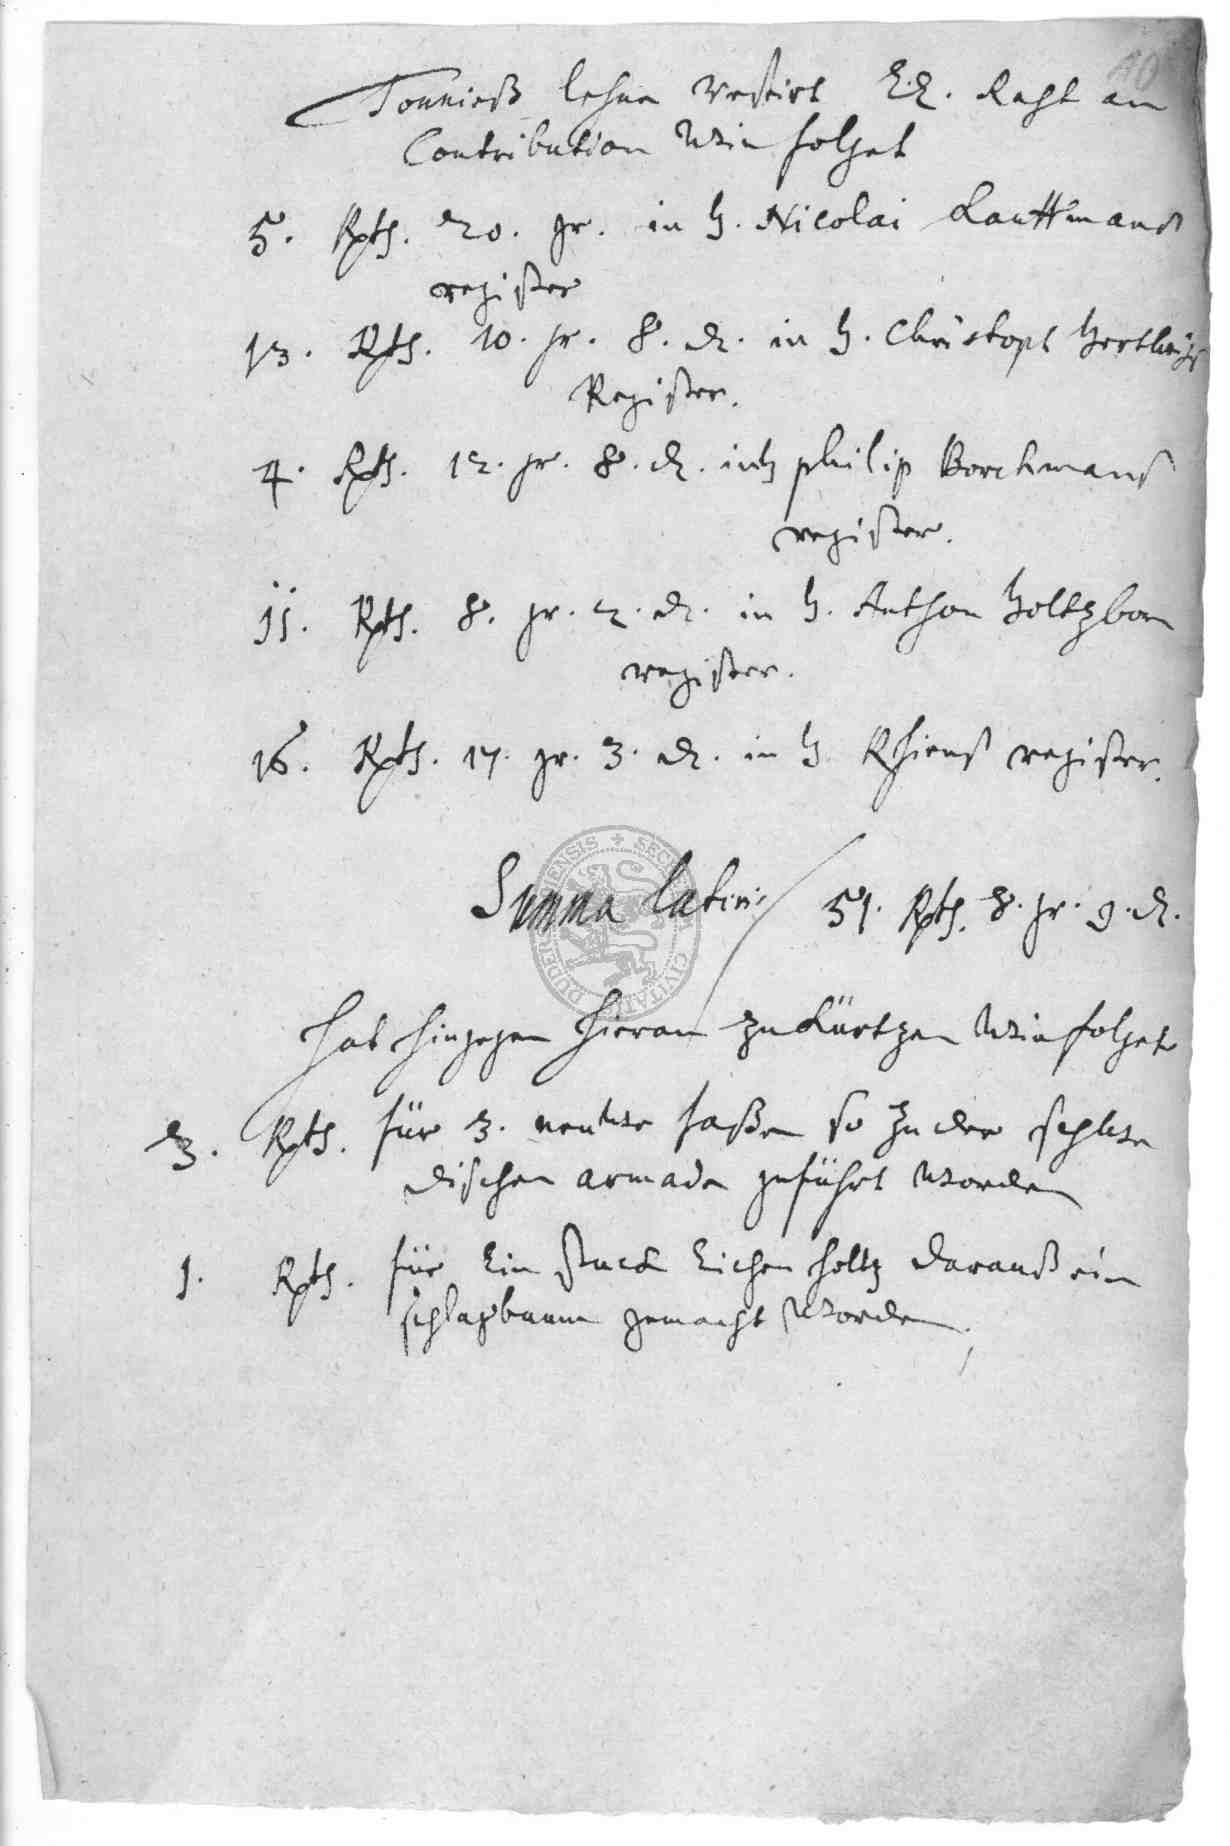 40
Tonnieß lehne restirt E.E. Raht an
Contribution Wie folget
5. Rths. 20. gr. in H. Nicolai Kauffmanß
register
13. Rths. 10. gr. 8. d. in H. Christoph Hertwigs
Register.
4. Rths. 12. gr. 8. d. in H philip Borckmanß
register.
11. Rths. 8. gr. 2. d. in H. Anthon Holtzborn
register.
16. Rths. 17. gr. 3. d. in H. Rhienß register.
Summa lateris 51. Rths. 8. gr. 9. d.
hat hingegen hieran zu Kürtzen Wie folget
3. Rths. für 3. faßen so zu der schwe
dischen armade geführt worden
1. Rths. für Ein stuck Eichen holtz darauß ein
schlagbaum gemacht worden,